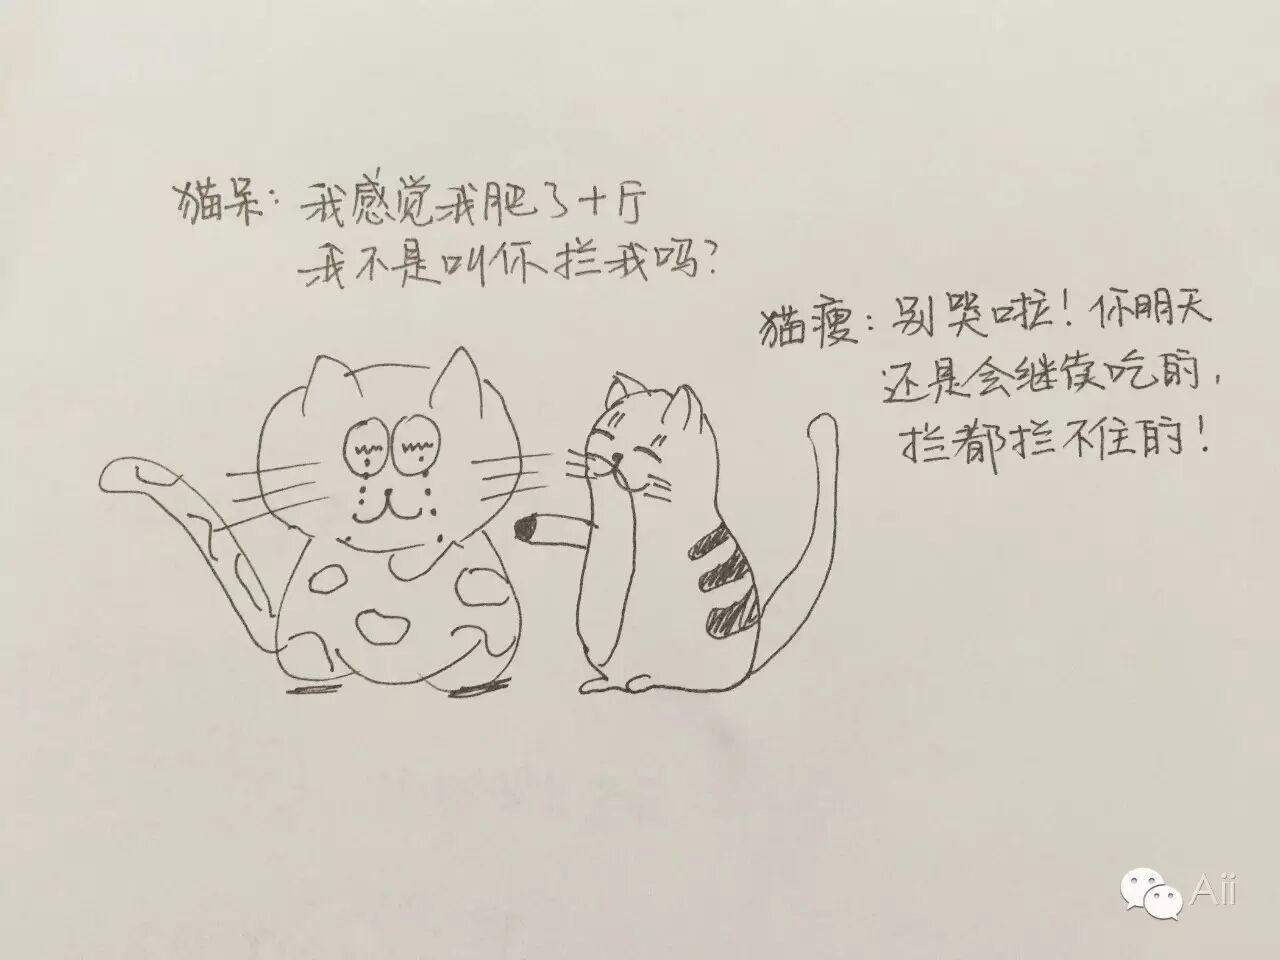 猫呆：我感觉我肥了十斤
我不是叫你拦我吗？
猫瘦：别哭啦！你明天
还是会继续吃的，
拦都拦不住的！
Aii